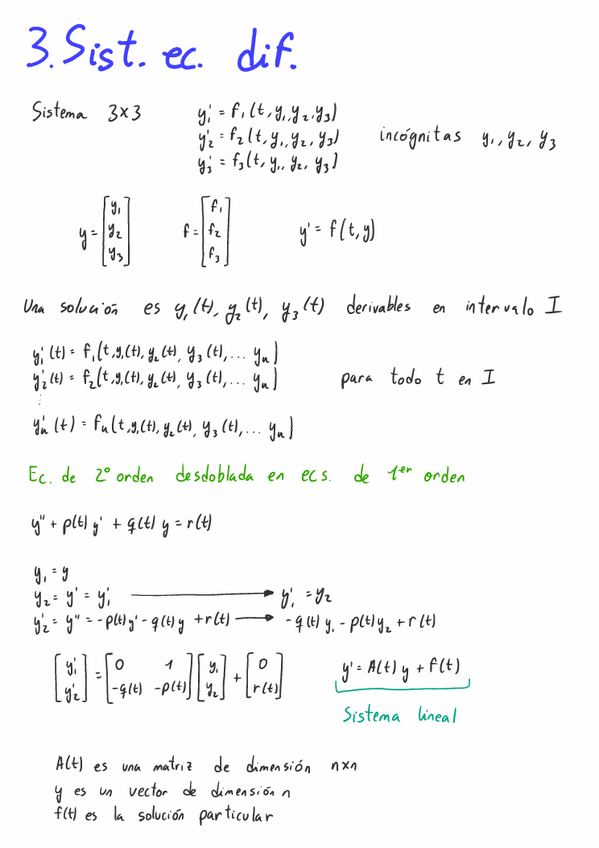 3. Sist. ec. dif.
Sistema 3x3
y₁' = f₁(t, y₁, y₂, y₃)
y₂' = f₂(t, y₁, y₂, y₃)
y₃' = f₃(t, y₁, y₂, y₃)
incógnitas y₁, y₂, y₃
y = [y₁ y₂ y₃] f = [f₁ f₂ f₃] y' = f(t,y)
Una solución es y₁(t), y₂(t), y₃(t) derivables en intervalo I
y₁'(t) = f₁(t, y₁(t), y₂(t), y₃(t), ... yₙ)
y₂'(t) = f₂(t, y₁(t), y₂(t), y₃(t), ... yₙ) para todo t en I
⋮
yₙ'(t) = fₙ(t, y₁(t), y₂(t), y₃(t), ... yₙ)
Ec. de 2º orden desdoblada en ecs. de 1er orden
y'' + p(t) y' + q(t) y = r(t)
y₁ = y
y₂ = y' = y₁' → y₁' = y₂
y₂' = y'' = -p(t)y' - q(t)y + r(t) → -q(t)y₁ - p(t)y₂ + r(t)
[y₁' y₂'] = [0 1 -q(t) -p(t)] [y₁ y₂] + [0 r(t)] y' = A(t) y + f(t)
Sistema lineal
A(t) es una matriz de dimensión nxn
y es un vector de dimensión n
f(t) es la solución particular